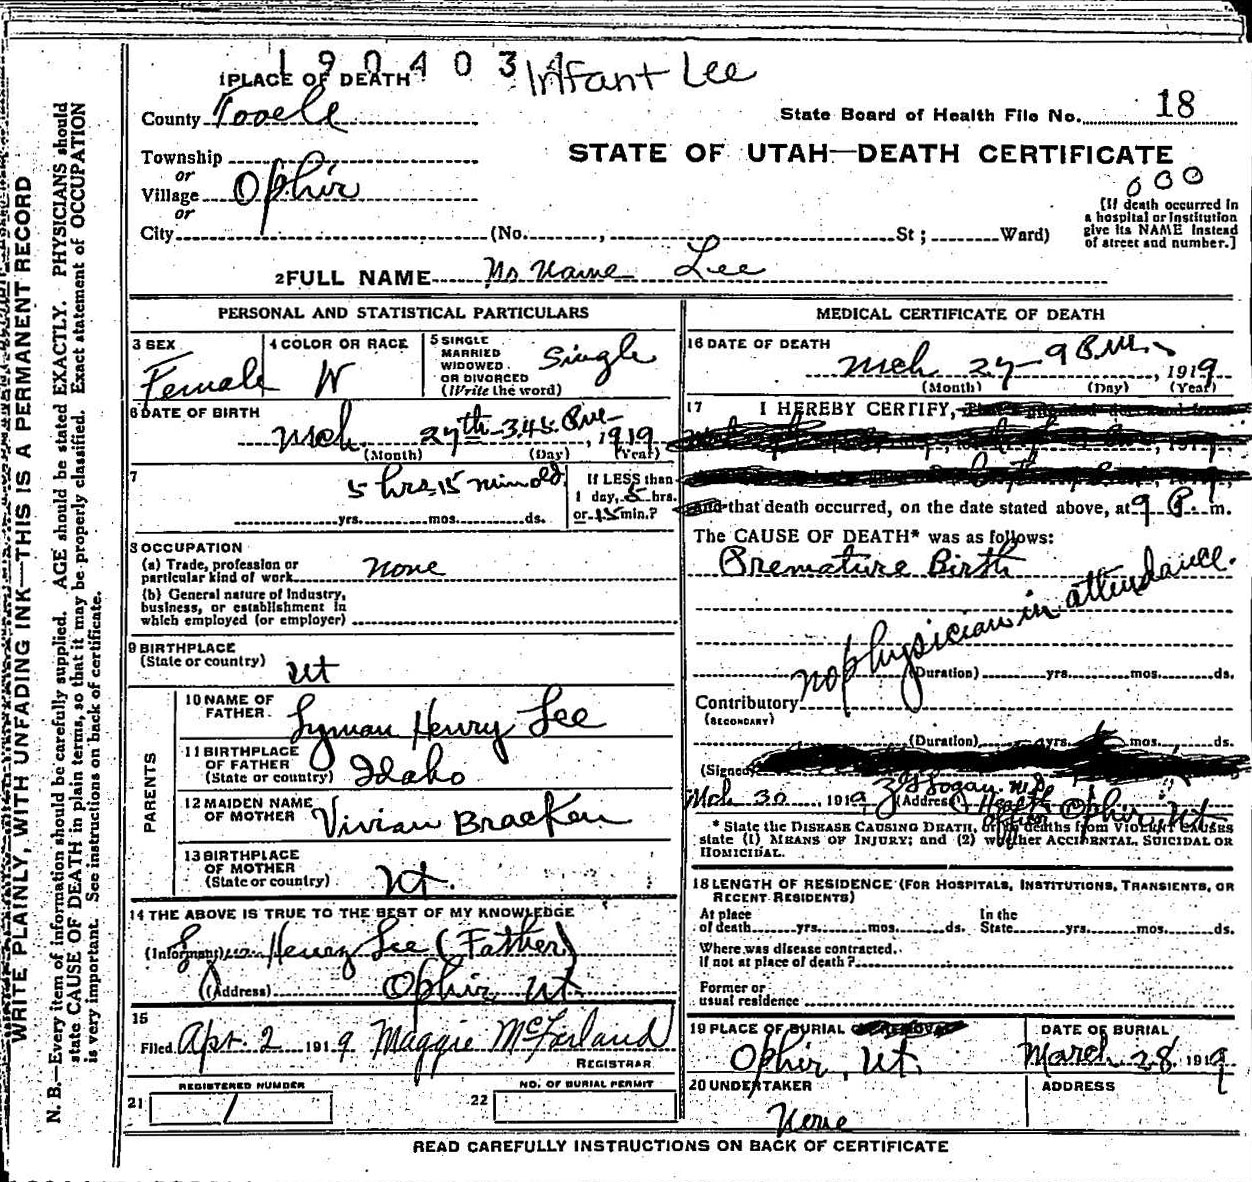 190403
Infant Lee
1 PLACE OF DEATH
County Tooele
State Board of Health File No. 18
Township
or
Village Ophir
or
City (No. , St ; Ward)
STATE OF UTAH—DEATH CERTIFICATE
000
[If death occurred in
a hospital or institution
give its NAME instead
of street and number.]
2 FULL NAME No Name Lee
PERSONAL AND STATISTICAL PARTICULARS
3 SEX
Female
4 COLOR OR RACE
W
5 SINGLE
MARRIED
WIDOWED
OR DIVORCED
(Write the word)
Single
6 DATE OF BIRTH
Mch. 27th 3:45 P.M. , 1919
(Month) (Day) (Year)
7
5 hrs 15 min old
yrs. mos. ds.
If LESS than
1 day, 5 hrs.
or 15 min.?
8 OCCUPATION
(a) Trade, profession or
particular kind of work none
(b) General nature of Industry,
business, or establishment in
which employed (or employer)
9 BIRTHPLACE
(State or country) Ut
PARENTS
10 NAME OF
FATHER Lyman Henry Lee
11 BIRTHPLACE
OF FATHER
(State or country) Idaho
12 MAIDEN NAME
OF MOTHER Vivian Bracken
13 BIRTHPLACE
OF MOTHER
(State or country) Ut.
14 THE ABOVE IS TRUE TO THE BEST OF MY KNOWLEDGE
(Informant) Lyman Henry Lee (Father)
(Address) Ophir, Ut
15
Filed Apr. 2 1919 Maggie McFarland
REGISTRAR
REGISTERED NUMBER
21 1
NO. OF BURIAL PERMIT
22
MEDICAL CERTIFICATE OF DEATH
16 DATE OF DEATH
Mch 27 9 P.M. , 1919
(Month) (Day) (Year)
17 I HEREBY CERTIFY,
and that death occurred, on the date stated above, at 9 P. m.
The CAUSE OF DEATH* was as follows:
Premature Birth
no physician in attendance.
(Duration) yrs. mos. ds.
Contributory
(SECONDARY)
(Duration) yrs. mos. ds.
(Signed)
Mch 30 1919 (Address) Logan M.D. Health officer Ophir, Ut
* State the DISEASE CAUSING DEATH, or in deaths from VIOLENT CAUSES
state (1) MEANS OF INJURY; and (2) whether ACCIDENTAL, SUICIDAL OR
HOMICIDAL.
18 LENGTH OF RESIDENCE (FOR HOSPITALS, INSTITUTIONS, TRANSIENTS, OR
RECENT RESIDENTS)
At place
of death yrs. mos. ds.
In the
State yrs. mos. ds.
Where was disease contracted.
If not at place of death ?
Former or
usual residence
19 PLACE OF BURIAL
Ophir, Ut.
DATE OF BURIAL
March 28 1919
20 UNDERTAKER
None
ADDRESS
READ CAREFULLY INSTRUCTIONS ON BACK OF CERTIFICATE
WRITE PLAINLY, WITH UNFADING INK—THIS IS A PERMANENT RECORD
N. B.—Every item of information should be carefully supplied. AGE should be stated EXACTLY. PHYSICIANS should
state CAUSE OF DEATH in plain terms, so that it may be properly classified. Exact statement of OCCUPATION
is very important. See instructions on back of certificate.